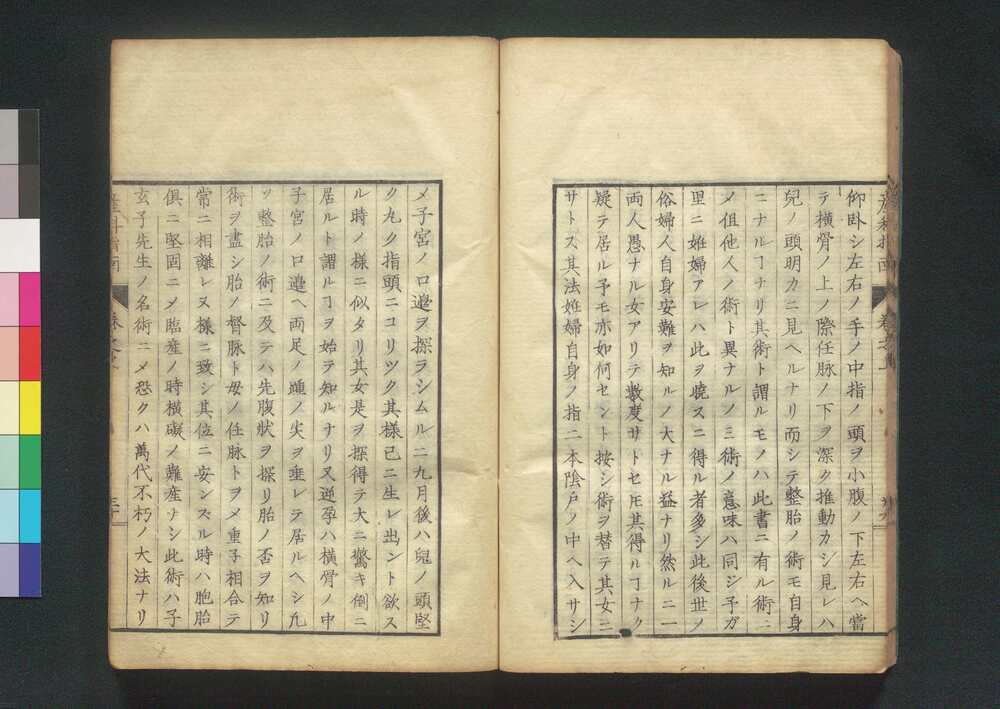 仰卧シ左右ノ手ノ中指ノ頭ヲ小腹ノ下左右ヘ當
テ横骨ノ上ノ際任脉ノ下ヲ深ク推動カシ見レハ
兒ノ頭明カニ見ヘルナリ而シテ整胎ノ術モ自身
ニナルヿナリ其術ト謂ルモノハ此書ニ有ル術ニ
メ但他人ノ術ト異ナルノミ術ノ意味ハ同シ予ガ
里ニ姙婦アレハ此ヲ曉スニ得ル者多シ此後世ノ
俗婦人自身安難ヲ知ルノ大ナル益ナリ然ルニ一
両人愚ナル女アリテ數度サトセ𪜈其得ルヿナク
疑テ居ル予モ亦如何セント按シ術ヲ替テ其女ニ
サトス其法姙婦自身ノ指二本陰戸ノ中ヘ入サシ
メ子宮ノ口邉ヲ探ラシムルニ九月後ハ兒ノ頭堅
ク丸ク指頭ニコリツク其様已ニ生レ出ント欲ス
ル時ノ様ニ似タリ其女是ヲ探得テ大ニ驚キ倒ニ
居ルト謂ルヿヲ始テ知ルナリ又逆孕ハ横骨ノ中
子宮ノ口邉ヘ両足ノ踵ノ尖ヲ垂レテ居ルヘシ凢
ソ整胎ノ術ニ及テハ先腹狀ヲ探リ胎ノ否ヲ知リ
術ヲ盡シ胎ノ督脉ト毋ノ任脉トヲメ重子相合テ
常ニ相離レヌ様ニ致シ其位ニ安ンスル時ハ胞胎
俱ニ堅固ニメ臨産ノ時横礙ノ難産ナシ此術ハ子
玄子先生ノ名術ニメ恐クハ萬代不朽ノ大法ナリ